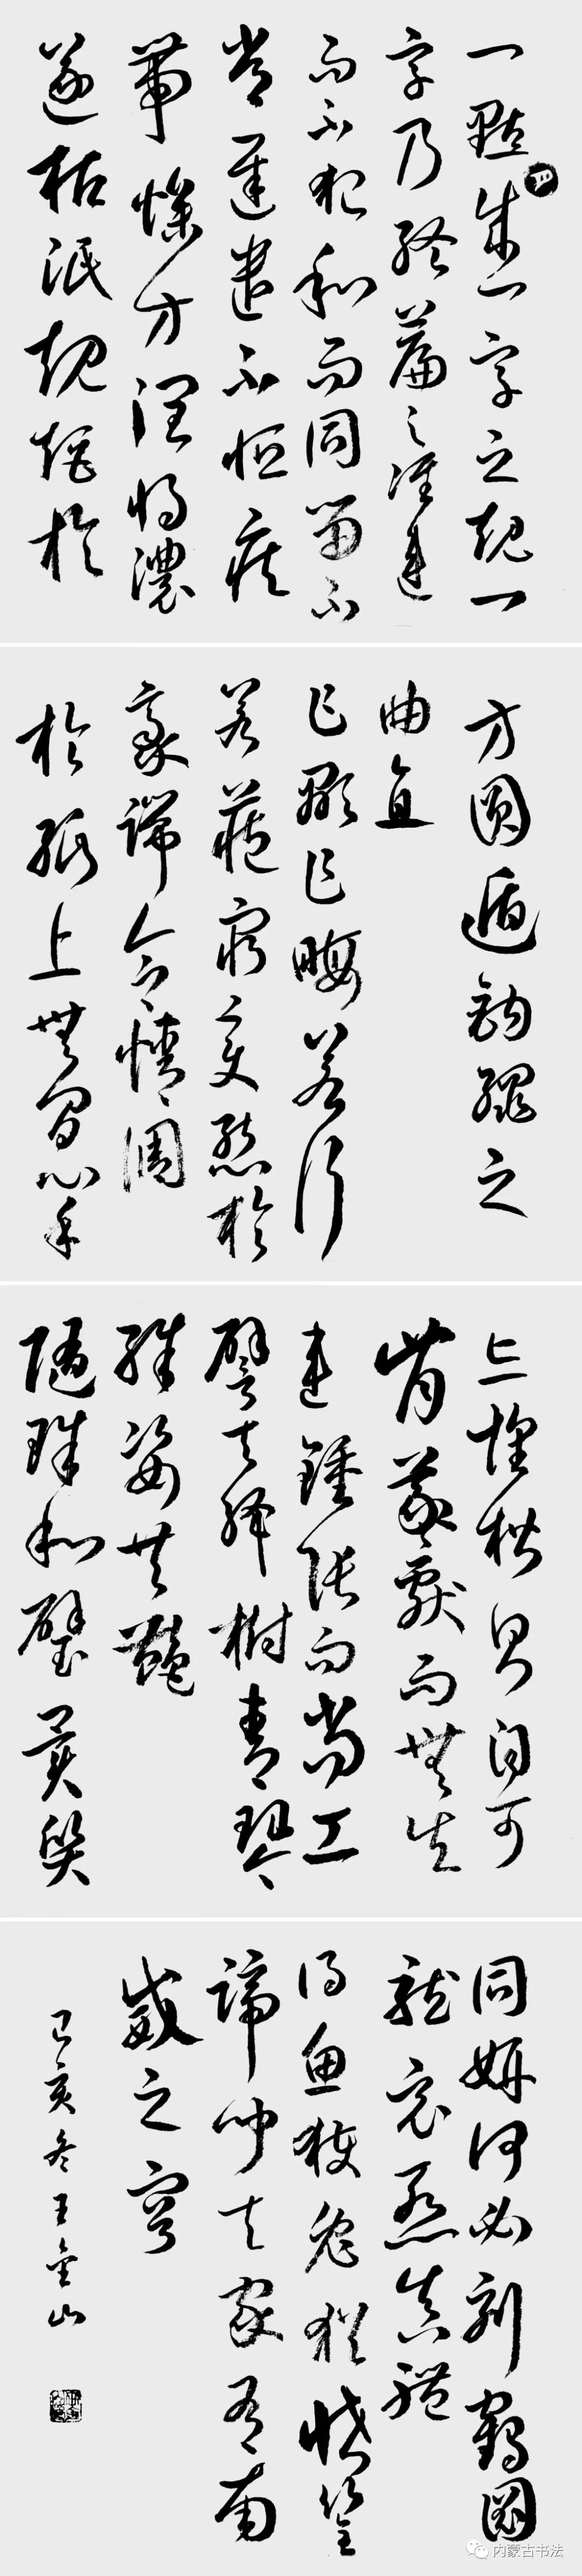 一點成一字之規一
字乃終篇之准違
而不犯和而同留不
常遲遣不恒疾
帶燥方潤將濃
遂枯泯規矩於
方圓遁鉤繩之
曲直
乍顯乍晦若行
若藏窮變態於
豪端合情調
於紙上無間心手
忘懷楷則自可
背羲獻而無失
違鍾張而尚工
譬夫絳樹青琴
殊姿共艷
隨珠和璧異質
同妍何必刻鶴圖
龍竟慚真體
得魚獲兔猶恡筌
蹄聞夫家有南
威之容
己亥冬王金山
内蒙古书法